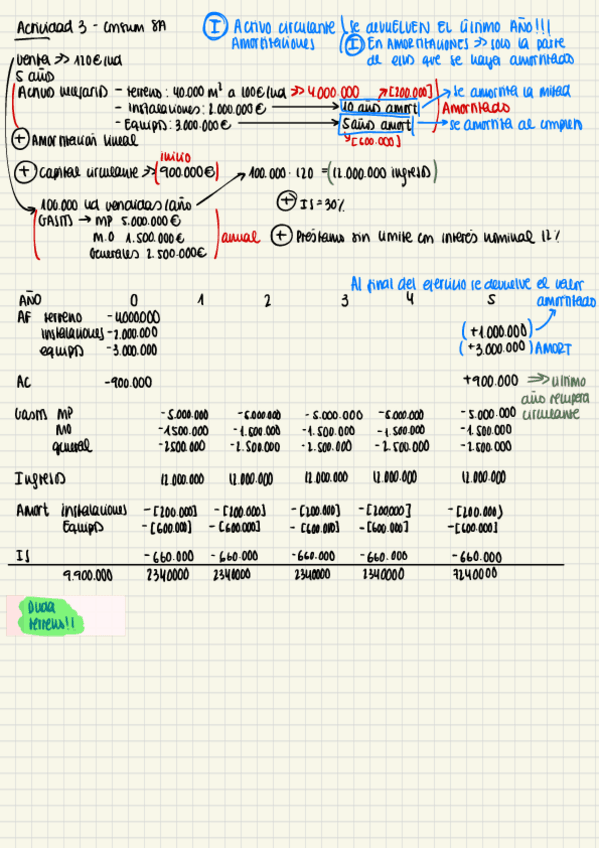 Actividad 3 - Consum SA
I Activo circulante | se devuelven el último año!!!
Amortizaciones I En amortizaciones => solo la parte
de ellos que se hayan amortizado
Venta => 120€/ud
5 años
Activo - terreno: 40.000 m² a 100€/ud => 4.000.000 [200.000] se amortiza la mitad
- Instalaciones: 2.000.000€ → 10 años amort Amortizado
- Equips: 3.000.000€ → 5 años amort → se amortiza al completo
[600.000]
+ Amortización lineal
inicio
+ Capital circulante => 900.000€ 100.000 · 120 = (12.000.000 ingresos)
100.000 ud vendidas/año + IS = 30%
Gastos → MP 5.000.000€
M.O 1.500.000€ anual + Préstamo sin límite con interés nominal 12%
Generales 2.500.000€
Al final del ejercicio se devuelve el valor
amortizado
AÑO 0 1 2 3 4 5
AF terreno -4000000
instalaciones -2.000.000 (+1.000.000)
equips -3.000.000 (+3.000.000) AMORT
AC -900.000 +900.000 => último
año recupera
circulante
Gastos MP -5.000.000 -5.000.000 -5.000.000 -5.000.000 -5.000.000
MO -1500.000 -1.500.000 -1.500.000 -1.500.000 -1.500.000
general -2500.000 -2.500.000 -2.500.000 -2.500.000 -2.500.000
Ingresos 12.000.000 12.000.000 12.000.000 12.000.000 12.000.000
Amort instalaciones -[200.000] -[200.000] -[200.000] -[200000] -[200.000)
Equips -[600.000] -[600.000] -[600.000] -[600.000] -[600.000]
IS -660.000 -660.000 -660.000 -660.000 -660.000
9.900.000 2340000 2340000 2340000 2340000 7240000
Duda
terreno!!